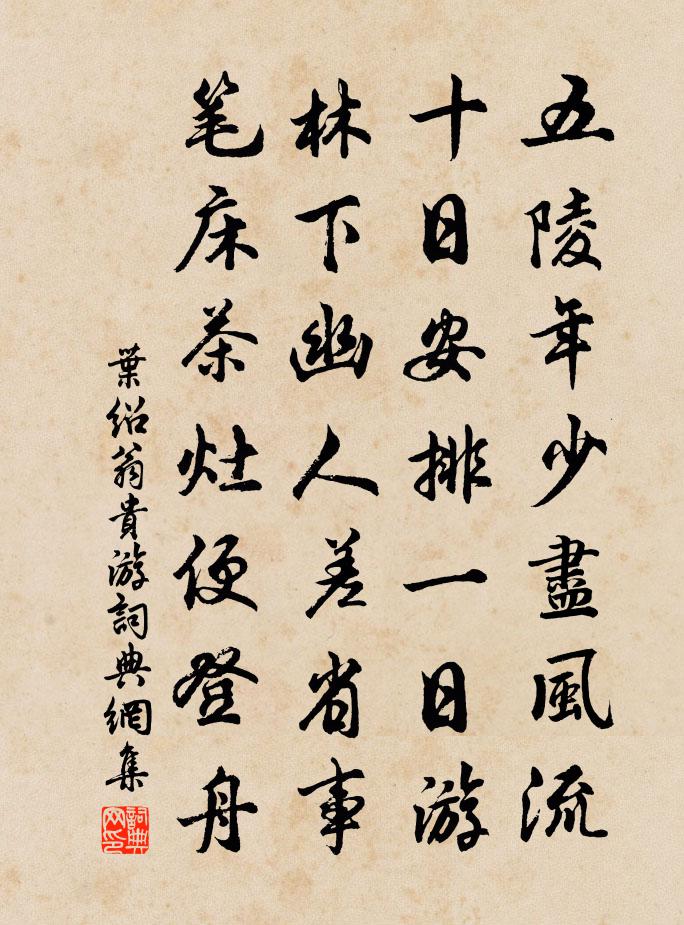 五陵年少盡風流
十日安排一日游
林下幽人差省事
笔床茶灶便登舟
葉紹翁貴游詞典網集
詞典網印